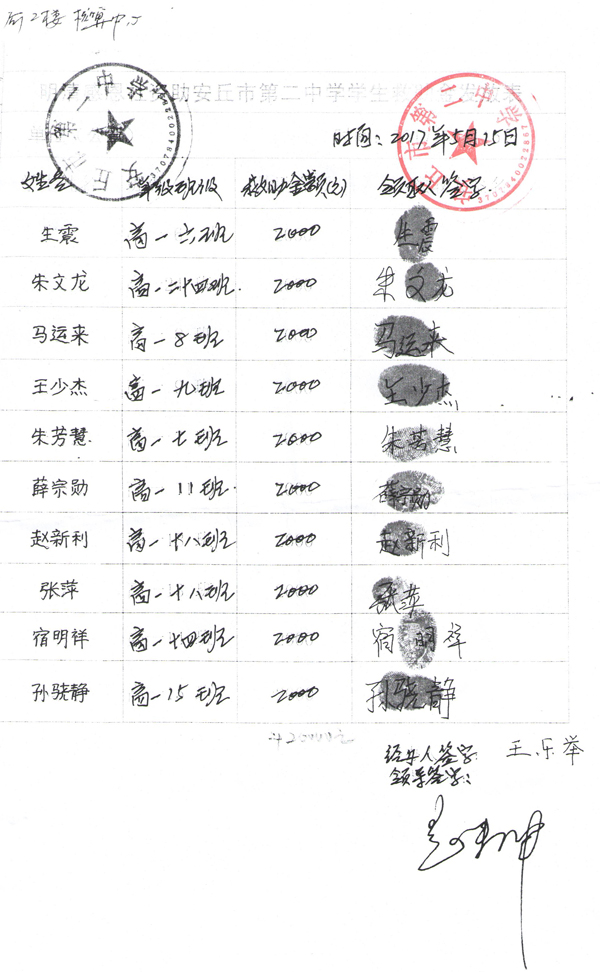 后2楼 核算中心
助安丘市第二中学学生
时间：2017年5月15日
安丘市第二中学
安丘市第二中学
姓名 年级班级 救助金额(元) 领取人签字
生震 高一六班 2000 生震
朱文龙 高一二十四班. 2000 朱文龙
马运来 高一8班 2000 马运来
王少杰 高一九班 2000 王少杰
朱芳慧. 高一七班 2000 朱芳慧
薛宗勋 高一11班. 2000 薛宗勋
赵新利 高一十八班 2000 赵新利
张萍 高一十八班 2000 张萍
宿明祥 高一十四班 2000 宿明祥
孙骁静 高一15班 2000 孙骁静
计20000元
经办人签字 王乐举
领导签字：